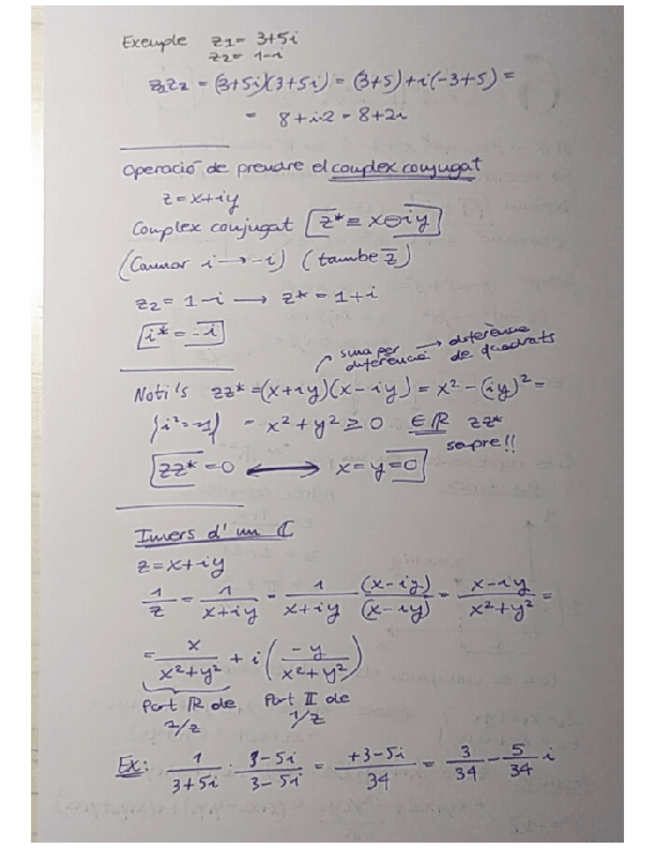 Exemple z1 = 3+5i
z2 = 1-i
z1z2 = (3+5i)(3+5i) = (3+5)+i(-3+5) =
= 8+i2 = 8+2i
Operació de prendre el complex conjugat
z = x+iy
Complex conjugat z* = x-iy
(Canviar i → -i) (també z̅)
z2 = 1-i → z* = 1+i
i* = -i
suma per diferència → diferència de quadrats
Noti's zz* = (x+iy)(x-iy) = x² - (iy)² =
{i²=-1} = x²+y² ≥ 0 ∈ℝ zz*
sempre!!
zz* = 0 ⟷ x=y=0
Invers d'un ℂ
z = x+iy
1/z = 1/(x+iy) = 1/(x+iy) (x-iy)/(x-iy) = (x-iy)/(x²+y²) =
= x/(x²+y²) + i(-y/(x²+y²))
Part ℝ de 1/z Part II de 1/z
Ex: 1/(3+5i) · (3-5i)/(3-5i) = (+3-5i)/34 = 3/34 - 5/34 i